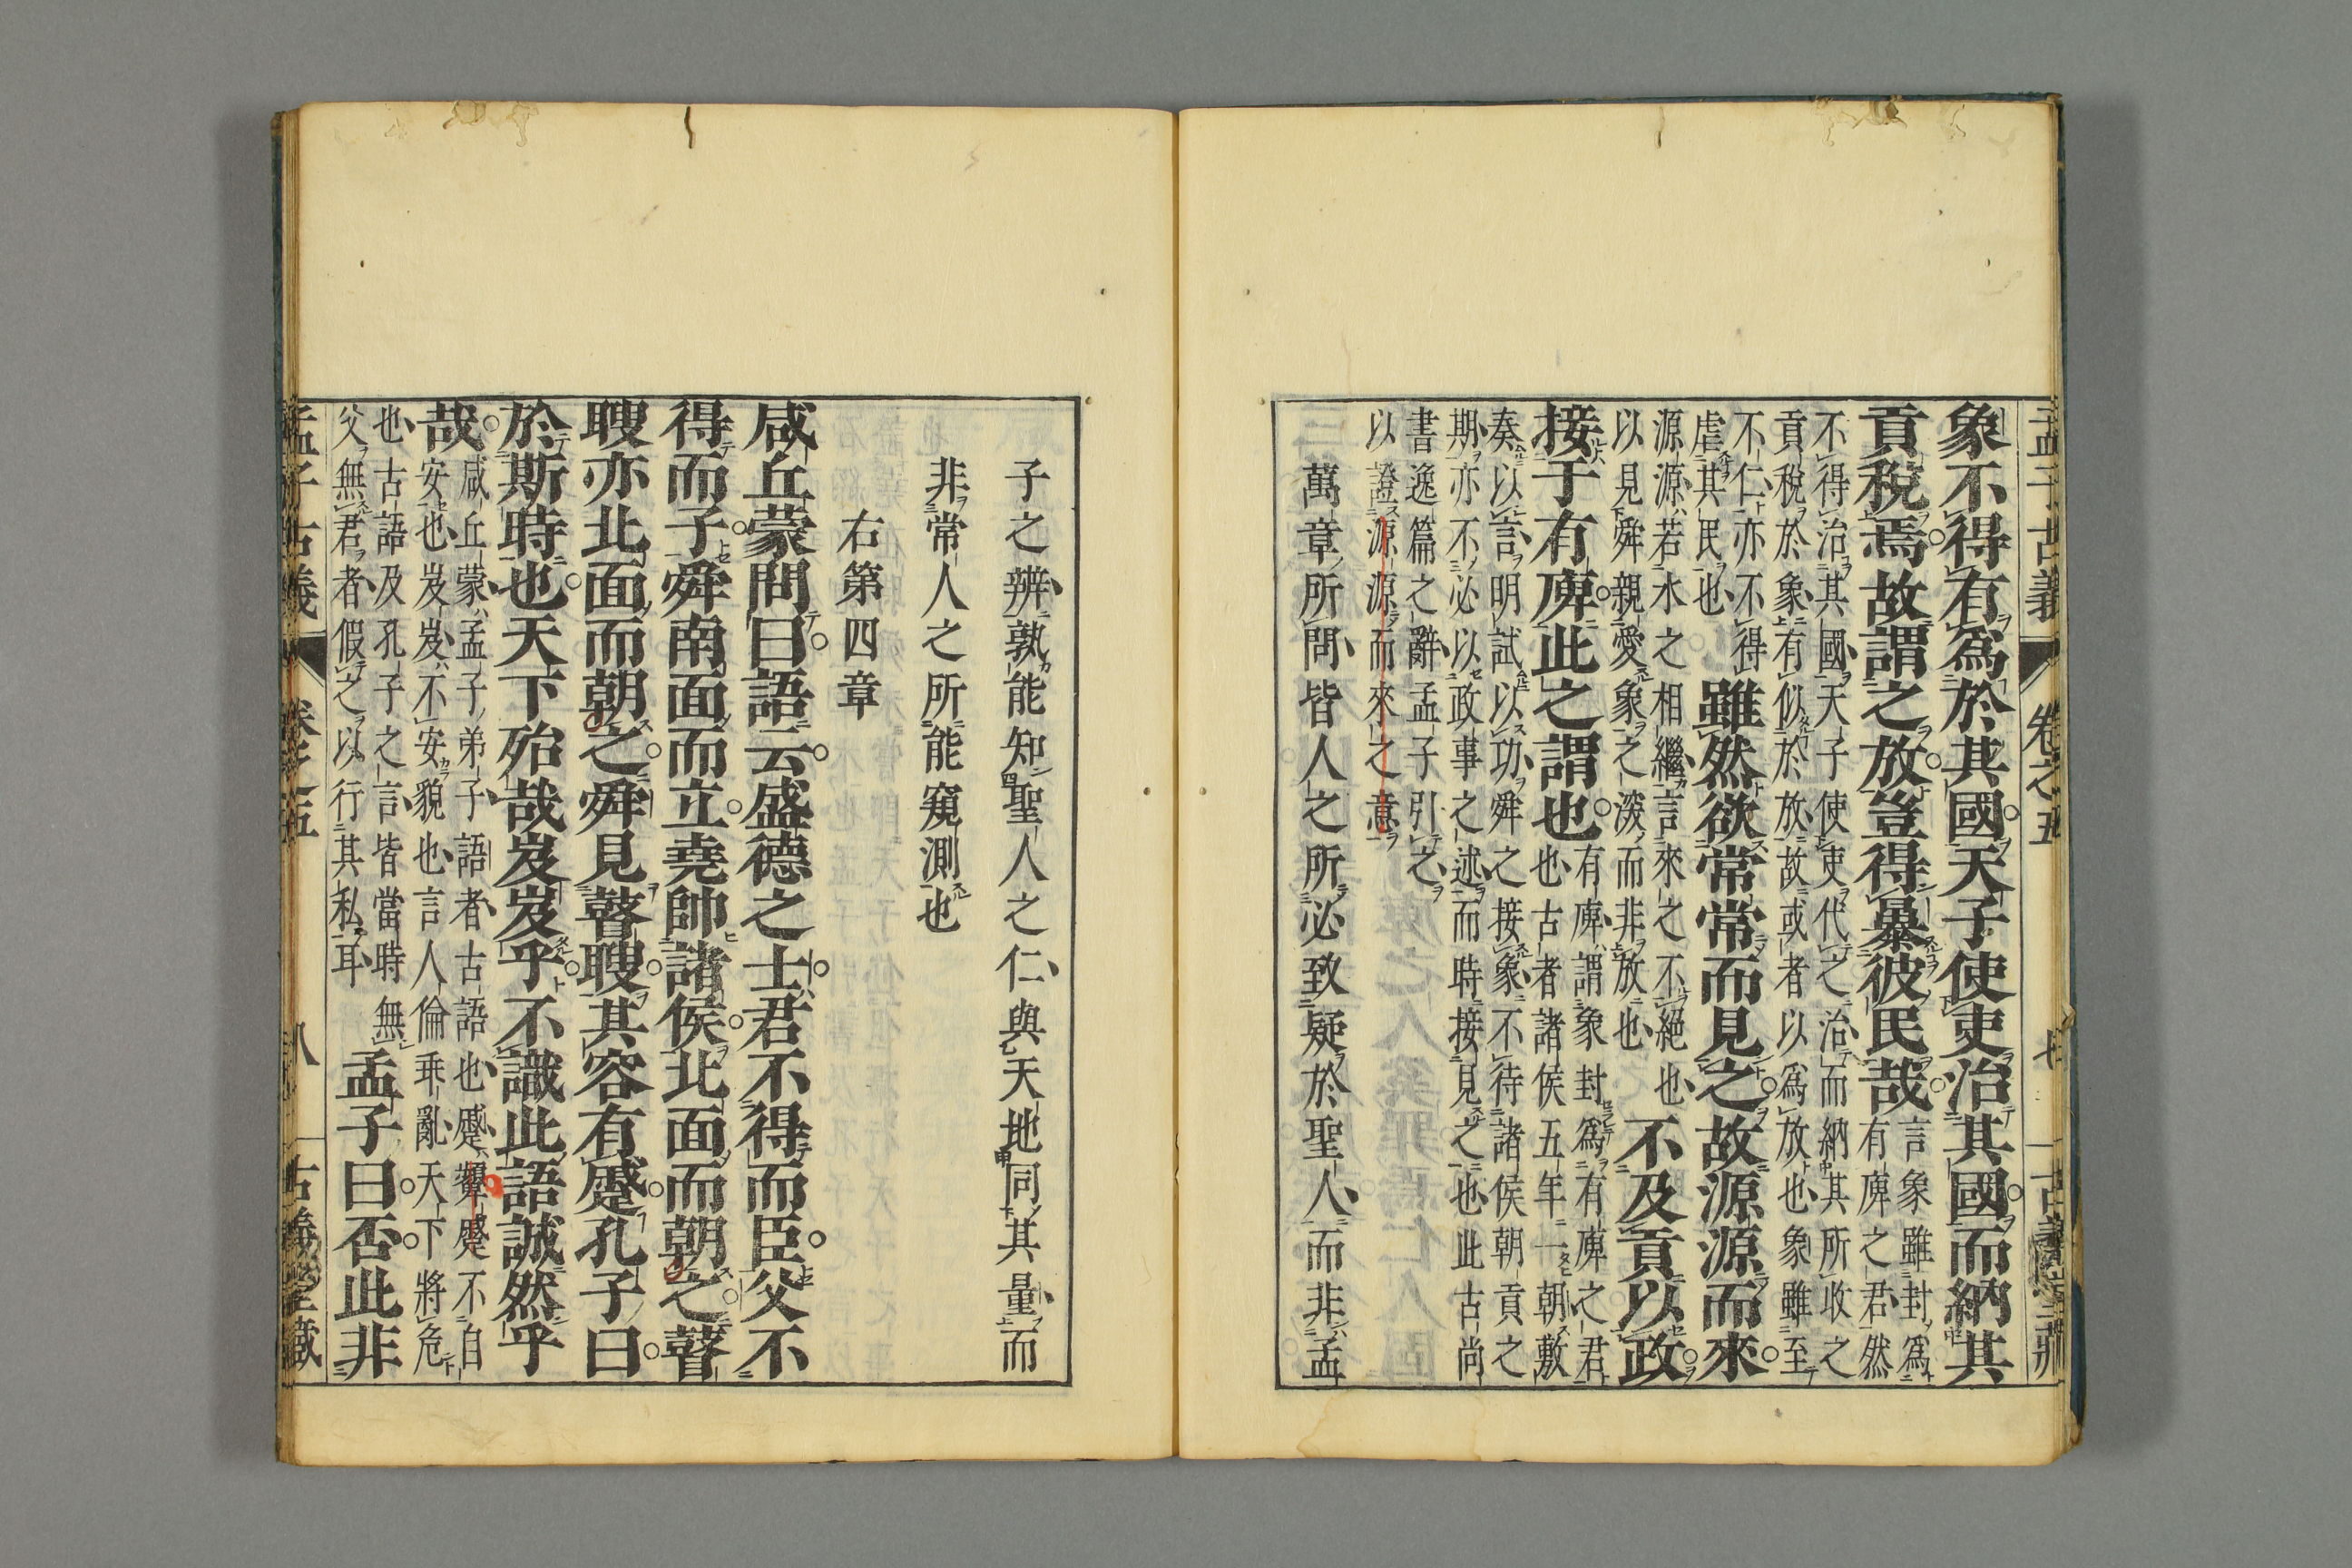 孟子古義 卷之五 七 古義堂藏
象不得有爲於其國天子使吏治其國而納其
貢稅焉故謂之放豈得暴彼民哉
言象雖封爲
有庳之君然
不得治其國天子使吏代之治而納其所收之
貢稅於象有似於放故或者以爲放也象雖至
不仁亦不得
虐其民也
雖然欲常常而見之故源源而來
源源若水之相繼言來之不絕也
以見舜親愛象之深而非放也
不及貢以政
接于有庳此之謂也
有庳謂象封爲有庳之君
也古者諸侯五年一朝敷
奏以言明試以功舜之接象不待諸侯朝貢之
期亦不必以政事之述而時接見之也此古尚
書逸篇之辭孟子引之
以證源源而來之意
萬章所問皆人之所必致疑於聖人而非孟
子之辨孰能知聖人之仁與天地同其量而
非常人之所能窺測也
右第四章
咸丘蒙問曰語云盛德之士君不得而臣父不
得而子舜南面而立堯帥諸侯北面而朝之瞽
瞍亦北面而朝之舜見瞽瞍其容有蹙孔子曰
於斯時也天下殆哉岌岌乎不識此語誠然乎
哉
咸丘蒙孟子弟子語者古語也蹙顰蹙不自
安也岌岌不安貌也言人倫乖亂天下將危
也古語及孔子之言皆當時無
父無君者假之以行其私耳
孟子曰否此非
孟子古義 卷之五 八 古義堂藏